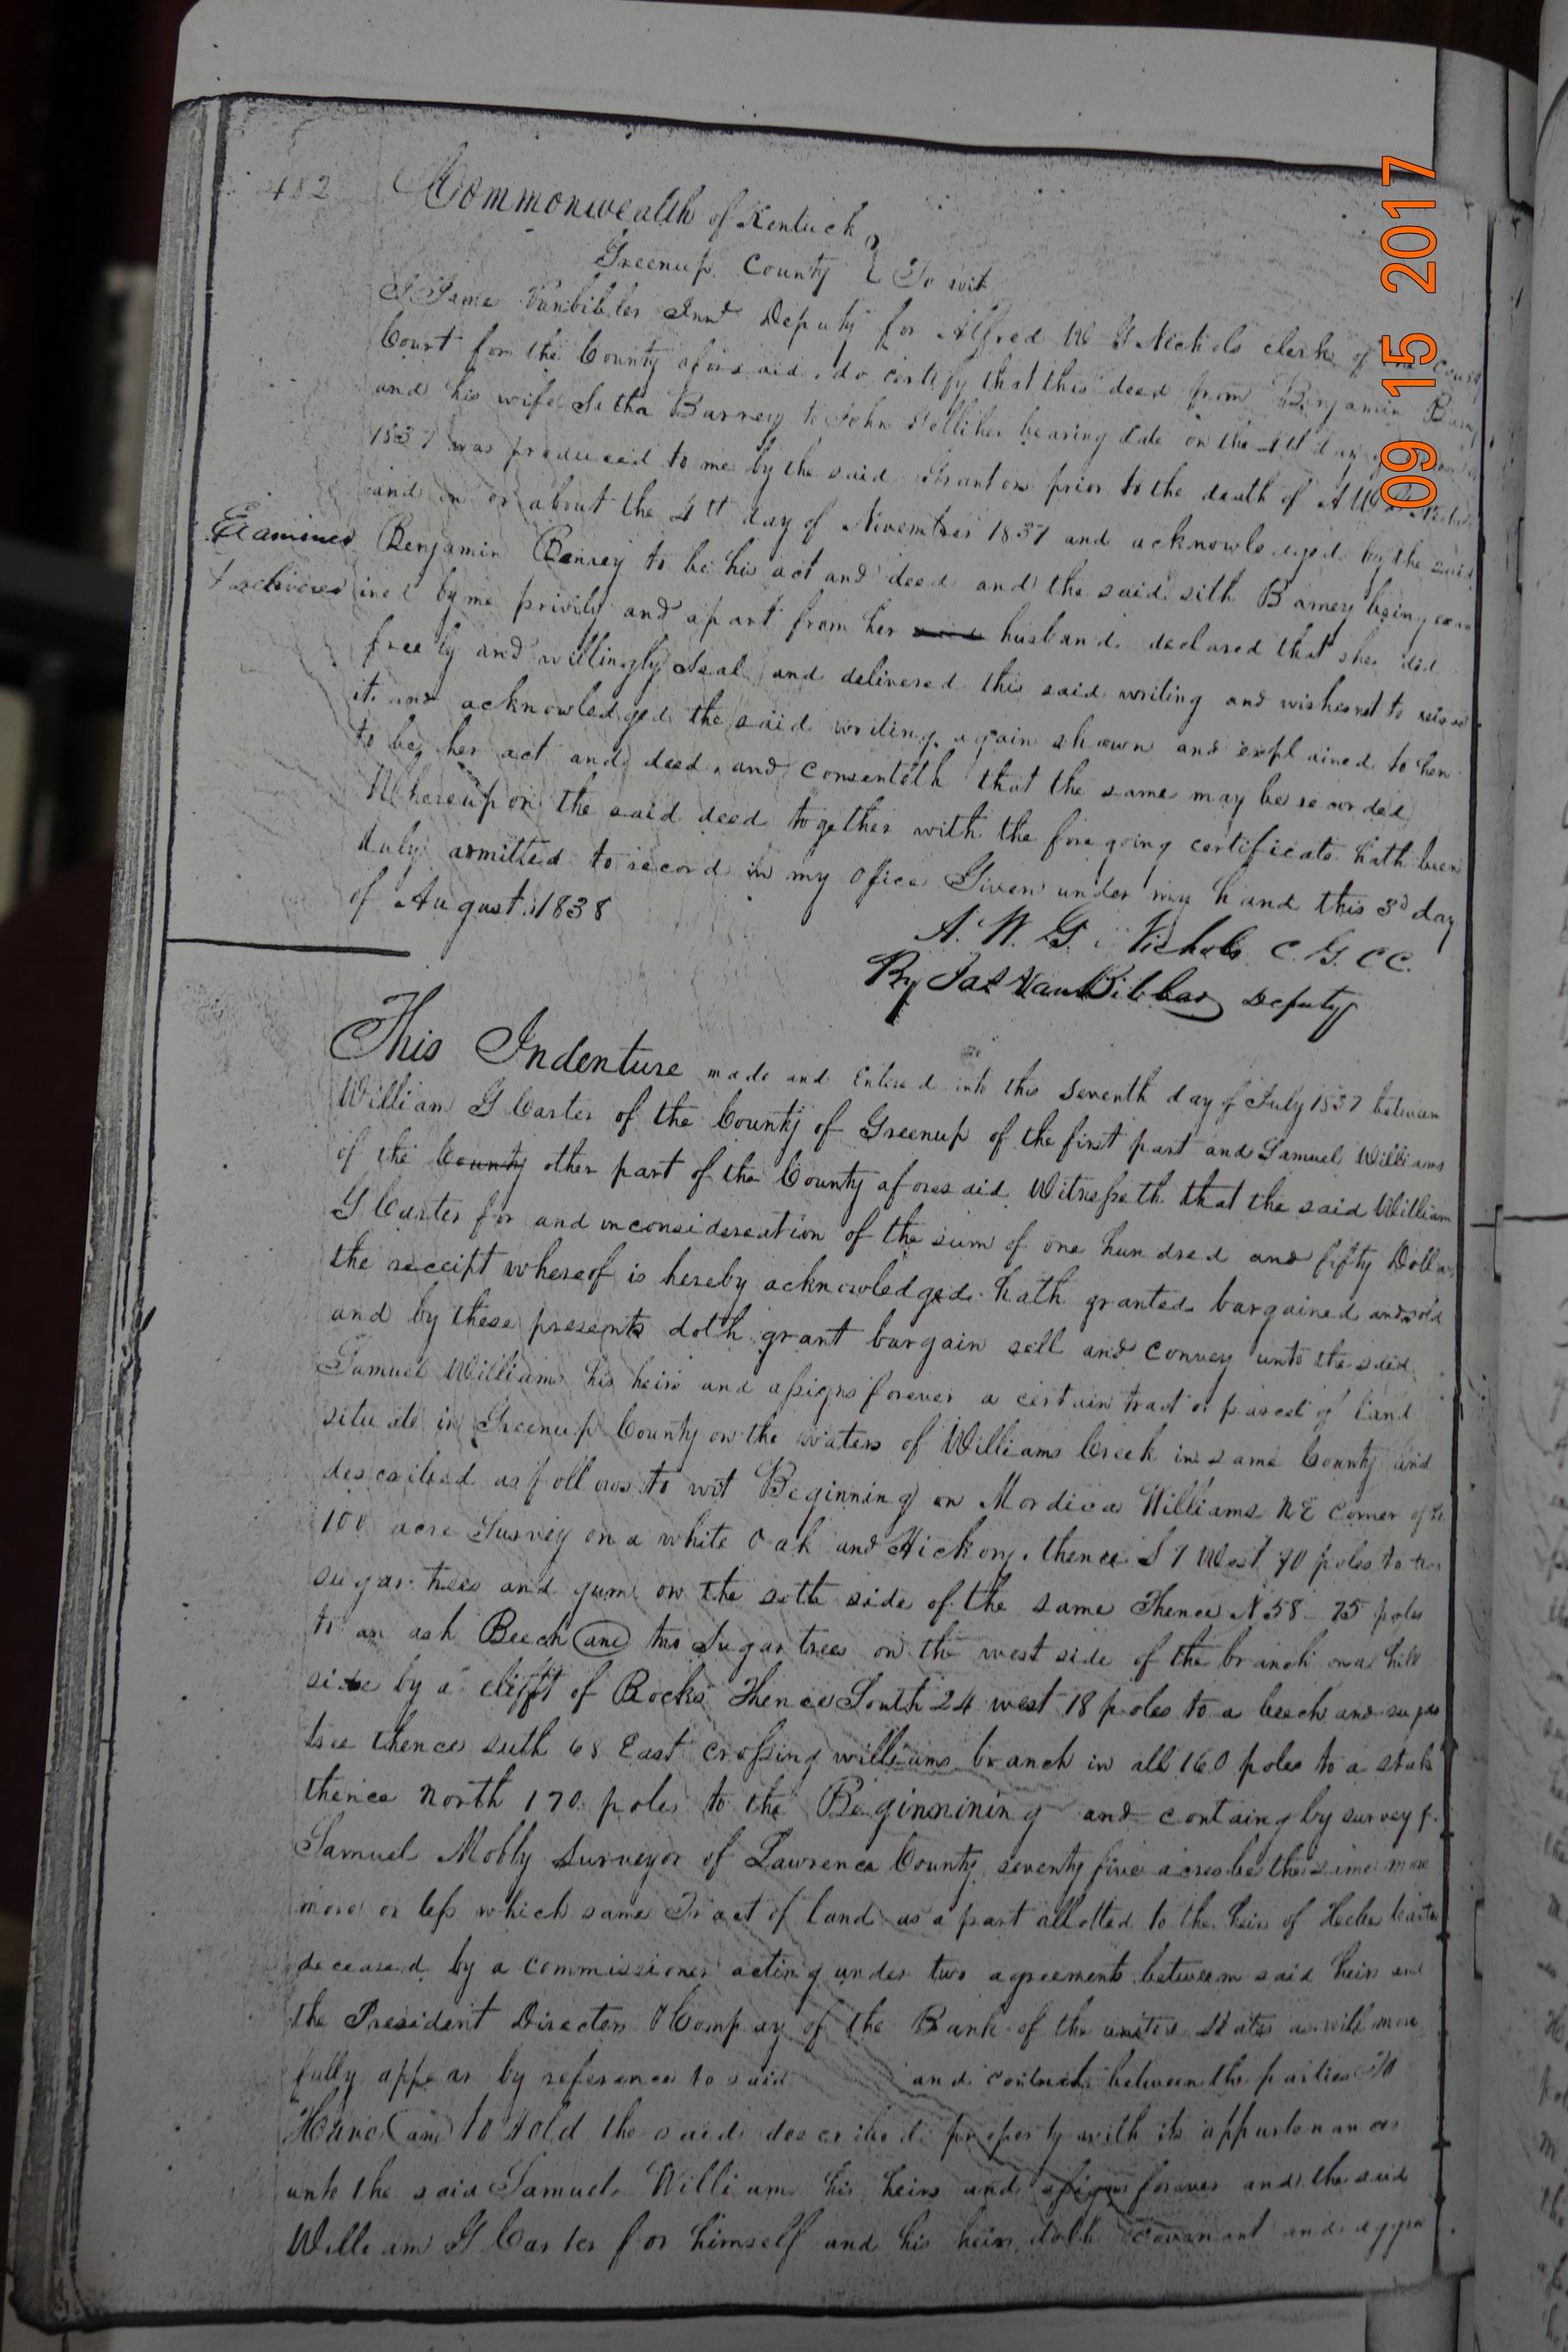 482
Commonwealth of Kentuck
Greenup County } To wit
I Jame Vanbibber Deputy for Alfred W G Nichols clerk of the County
Court for the County aforesaid, do certify that this deed from Benjamin
and his wife Setha Barney to John bearing date on the 4th day of
1837 was produced to me by the said Grantors prior to the death of A W G
and on or about the 4th day of Novembrer 1837 and acknowledged by the said
Examined Benjamin Barney to be his act and deed and the said sith Barney being exa
& delivered ined by me privily and apart from her said husband declared that she did
freely and willingly Seal and delivered this said writing and wishes not to retract
it and acknowledged the said writing again shown and explained to her
to be her act and deed, and Consenteth that the same may be recorded
Whereupon the said deed together with the foregoing certificate hath been
duly admitted to record in my Ofice Given under my hand this 3d day
of August 1838
A. W. G. Nichols C. G. C C.
By Jas VanBibber Deputy
This Indenture made and Entered into this Seventh day of July 1837 between
William G Carter of the County of Greenup of the first part and Samuel Williams
of the County other part of the County aforesaid Witnesseth that the said William
G Carter for and inconsidereation of the sum of one hundred and fifty Dollars
the receipt whereof is hereby acknowledged hath granted bargained and sold
and by these presents doth grant bargain sell and convey unto the said
Samuel Williams his heirs and assigns forever a certain tract or parcel of land
situate in Greenup County on the waters of Williams Creek in same County and
described as follows to wit Beginning on Mordica Williams NE corner of
100 acre Survey on a white Oak and Hickory, thence S 7 West 70 poles to two
sugar trees and gum on the soth side of the same Thence N 58 - 75 poles
to an ash Beech and two Sugar trees on the west side of the branch on a hill
side by a clifft of Rocks Thence South 24 west 18 poles to a beech and sugar
tree thence suth 68 East crossing williams branch in all 160 poles to a stake
thence North 170 poles to the Beginnining and containg by survey of
Samuel Mobly Surveyor of Lawrence County seventy five acres be the same more
more or less which same Tract of land as a part allotted to the heirs of Hebe Carter
deceased by a commissioner acting under two agreements between said heirs and
the President Directors & Compay of the Bank of the united States as will more
fully appear by reference to said and contracts between the parties To
Have and to Hold the said described property with its appurtenances
unto the said Samuel Williams his heirs and assigns forever and the said
William G Carter for himself and his heirs doth covenant and aggree
09 15 2017